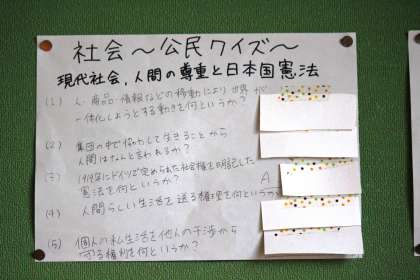 社会〜公民クイズ〜
現代社会,人間の尊重と日本国憲法
(1) 人・商品・情報などの移動により世界が
一体化しようとする動きを何というか?
(2) 集団の中で協力して生きることから
人間はなんと言われるか?
(3) 1919年にドイツで定められた社会権を明記した
憲法を何というか? A
(4) 人間らしい生活を送る権利を何というか
(5) 個人の私生活を他人の干渉から
守る権利を何というか?